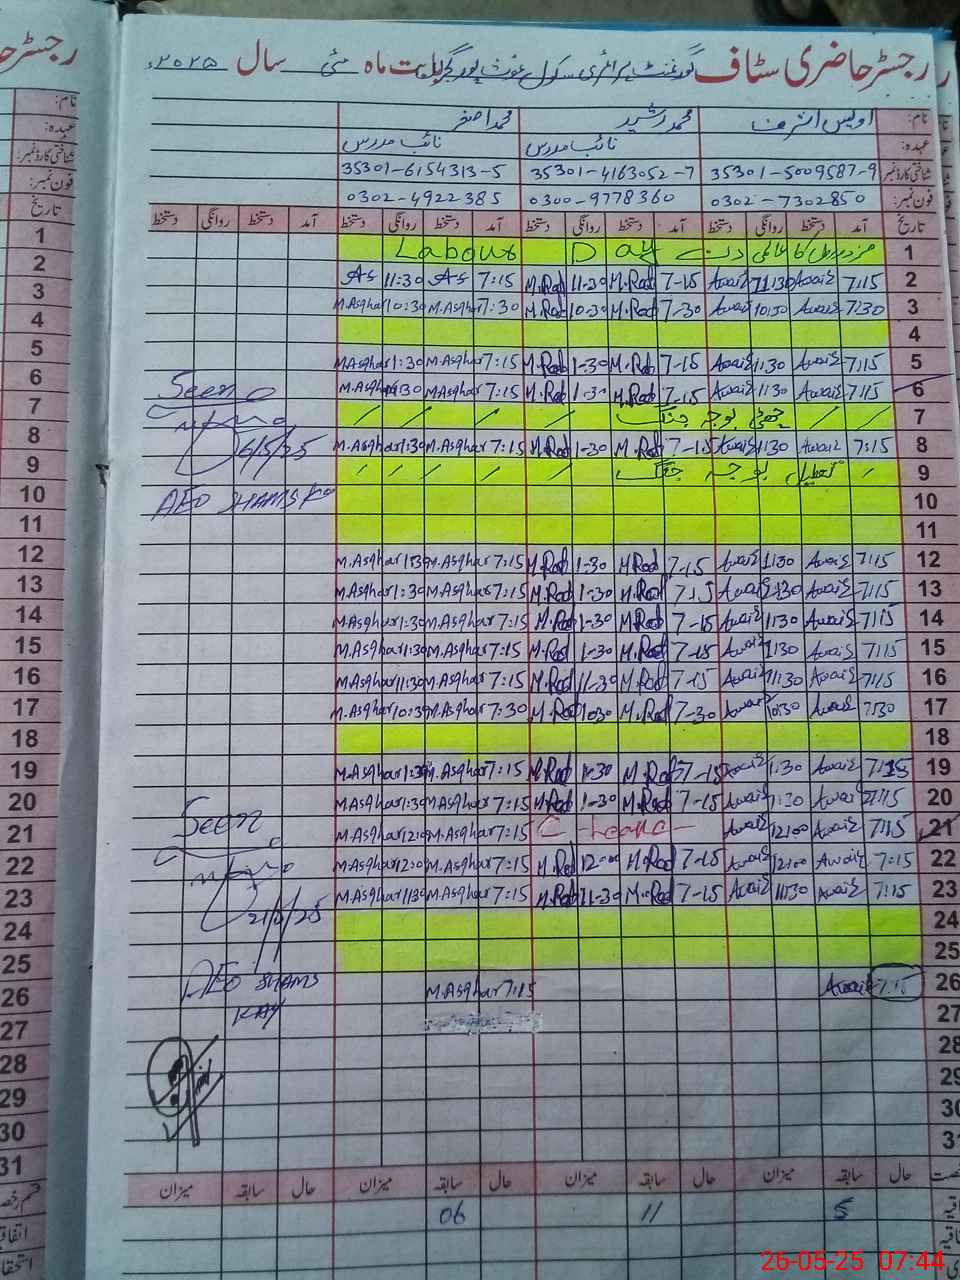 رجسٹر حاضری سٹاف گورنمنٹ پرائمری سکول غوث پور بابت ماہ مئی سال ۲۰۲۵ء
نام: اویس اشرف محمد رشید محمد اصغر
عہدہ: نائب مدرس نائب مدرس
شناختی کارڈ نمبر: 35301-5009587-9 35301-4163052-7 35301-6154313-5
فون نمبر: 0302-7302850 0300-9778360 0302-4922385
تاریخ آمد دستخط روانگی دستخط آمد دستخط روانگی دستخط آمد دستخط روانگی دستخط آمد دستخط روانگی دستخط
1 Labour Day مزدوروں کا عالمی دن 1
2 As 11:30 As 7:15 M.Rad 11-30 M.Rad 7-15 Awais 11:30 Awais 7:15 2
3 M.Asghar 10:30 M.Asghar 7:30 M.Rad 10-30 M.Rad 7-30 Awais 10:30 Awais 7:30 3
4 4
5 M.Asghar 1:30 M.Asghar 7:15 M.Rad 1-30 M.Rad 7-15 Awais 1:30 Awais 7:15 5
6 Seen M.Asghar 1:30 M.Asghar 7:15 M.Rad 1-30 M.Rad 7-15 Awais 1:30 Awais 7:15 6
7 چھٹی بوجہ جنگ 7
8 6/5/25 M.Asghar 1:30 M.Asghar 7:15 M.Rad 1-30 M.Rad 7-15 Awais 1:30 Awais 7:15 8
9 تعطیل بوجہ جنگ 9
10 AEO SHAMS 10
11 11
12 M.Asghar 1:30 M.Asghar 7:15 M.Rad 1-30 M.Rad 7-15 Awais 1:30 Awais 7:15 12
13 M.Asghar 1:30 M.Asghar 7:15 M.Rad 1-30 M.Rad 7-15 Awais 1:30 Awais 7:15 13
14 M.Asghar 1:30 M.Asghar 7:15 M.Rad 1-30 M.Rad 7-15 Awais 1:30 Awais 7:15 14
15 M.Asghar 1:30 M.Asghar 7:15 M.Rad 1-30 M.Rad 7-15 Awais 1:30 Awais 7:15 15
16 M.Asghar 11:30 M.Asghar 7:15 M.Rad 11-30 M.Rad 7-15 Awais 11:30 Awais 7:15 16
17 M.Asghar 10:30 M.Asghar 7:30 M.Rad 10-30 M.Rad 7-30 Awais 10:30 Awais 7:30 17
18 18
19 M.Asghar 1:30 M.Asghar 7:15 M.Rad 1-30 M.Rad 7-15 Awais 1:30 Awais 7:15 19
20 M.Asghar 1:30 M.Asghar 7:15 M.Rad 1-30 M.Rad 7-15 Awais 1:30 Awais 7:15 20
21 Seen M.Asghar 12:00 M.Asghar 7:15 C-Leave- Awais 12:00 Awais 7:15 21
22 M.Asghar 12:00 M.Asghar 7:15 M.Rad 12-00 M.Rad 7-15 Awais 12:00 Awais 7:15 22
23 21/5/25 M.Asghar 11:30 M.Asghar 7:15 M.Rad 11-30 M.Rad 7-15 Awais 11:30 Awais 7:15 23
24 24
25 25
26 AEO SHAMS M.Asghar 7:15 Awais 7:15 26
27 KAY 27
28 28
29 29
30 30
31 31
حال سابقہ میزان حال سابقہ میزان حال سابقہ میزان حال سابقہ میزان
5 11 06
26-05-25 07:44